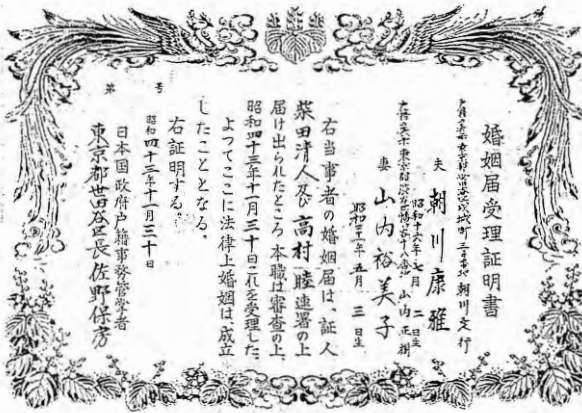 婚姻届受理証明書
夫 朝川康雅
昭和十六年七月 二日生
山内正樹
妻 山内裕美子
昭和二十年五月 三日生
右当事者の婚姻届は、証人
柴田清人及び高村睦連署の上
届け出られたところ、本職は審査の上、
昭和四十三年十一月三十日これを受理した。
よつてここに法律上婚姻は成立
したこととなる。
右証明する。
第 号
昭和四十三年十一月三十日
日本国政府戸籍事務管掌者
東京都世田谷区長佐野保房